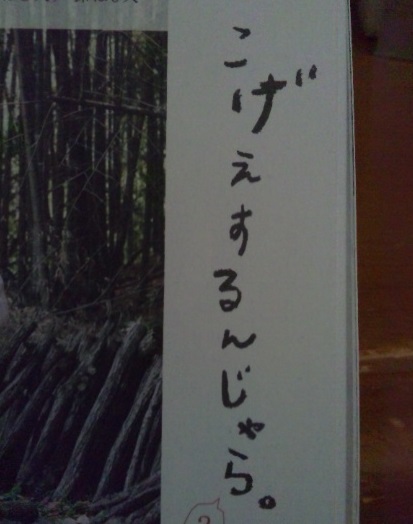 こげえするんじゃら。
2